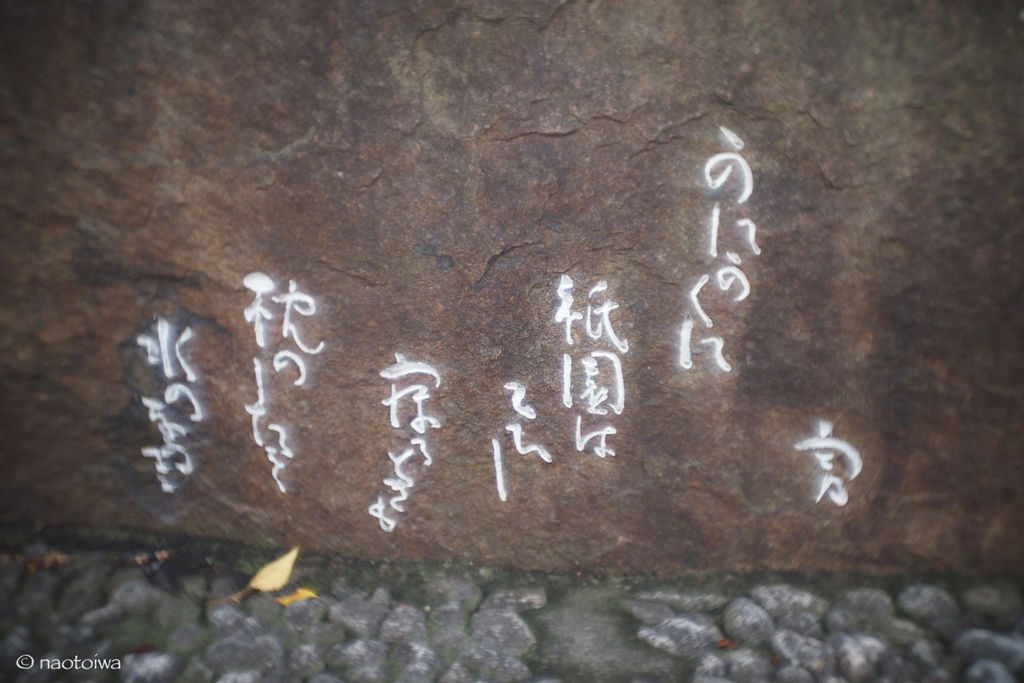 勇
かにかくに
祇園は
こひし
寐るときも
枕のしたを
水のながるる
© naotoiwa